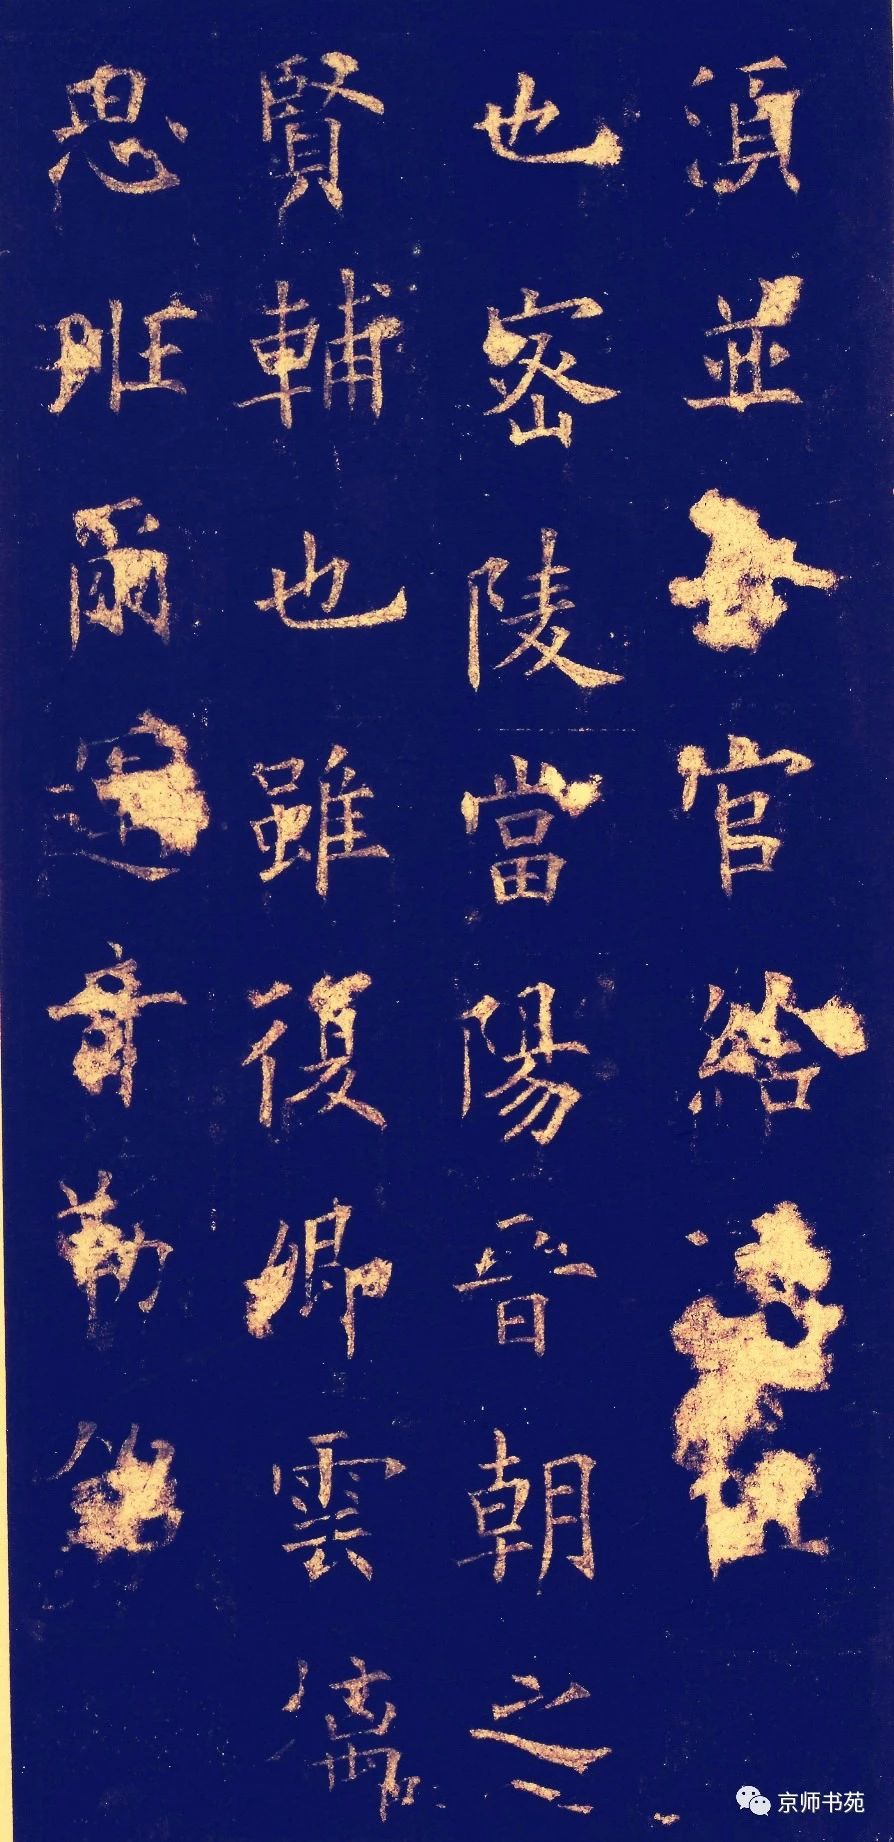 須並官給
也密陵當陽晉朝之
賢輔也雖復卿雲儷
思班爾運奇勒銘
京师书苑